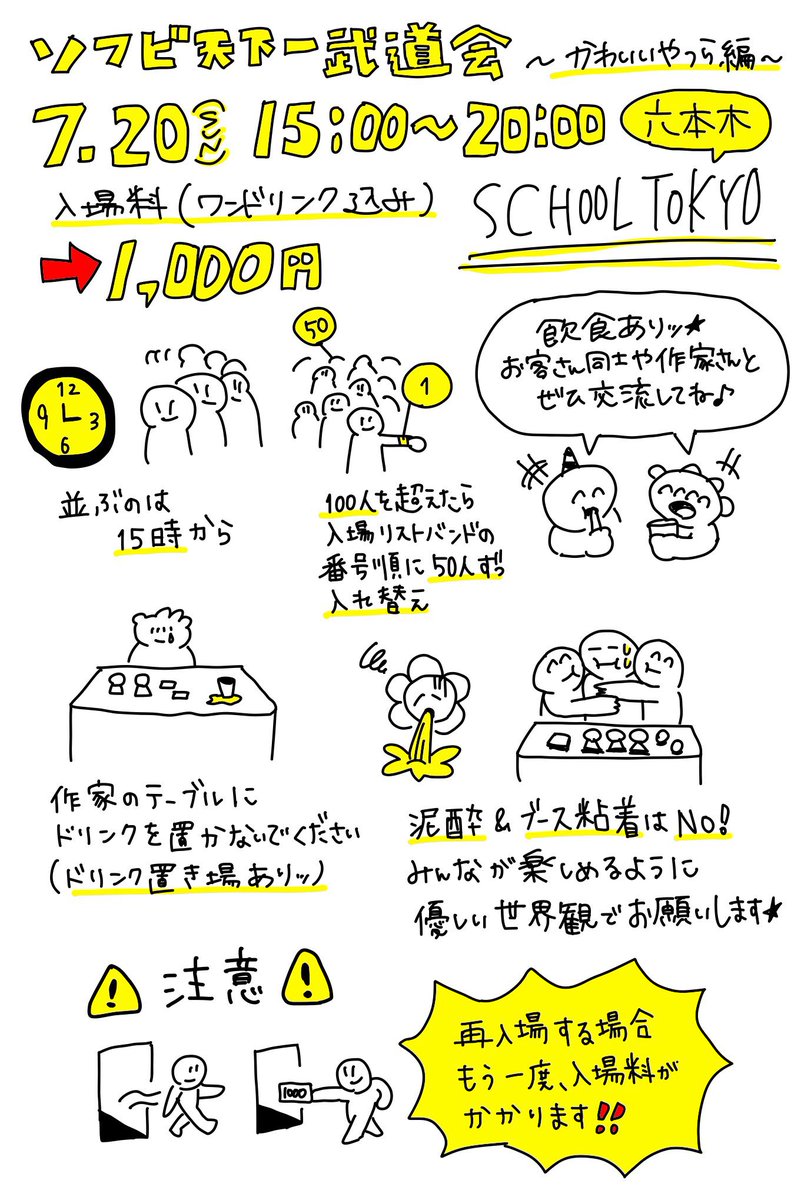 ソフビ天下一武道会 ~かわいいやつら編~
7.20 SUN 15:00~20:00 六本木
入場料(ワンドリンク込み) SCHOOL TOKYO
1,000円
12
9 3
6
50
1
飲食ありッ★
お客さん同士や作家さんと
ぜひ交流してね♪
並ぶのは
15時から
100人を超えたら
入場リストバンドの
番号順に50人ずつ
入れ替え
作家のテーブルに
ドリンクを置かないでください
(ドリンク置き場ありッ)
泥酔&ブース粘着はNo!
みんなが楽しめるように
優しい世界観でお願いします★
! 注意 !
1000
再入場する場合
もう一度、入場料が
かかります!!